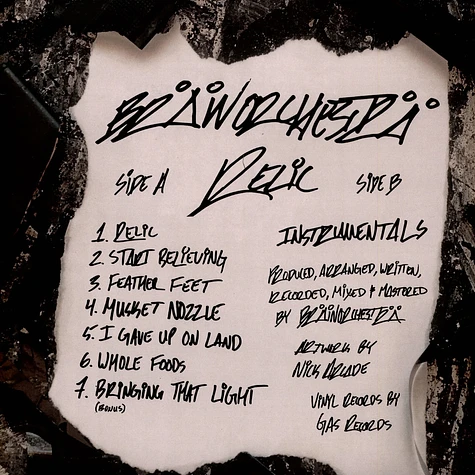 BRAINORCHESTRA
SIDE A
RELIC
SIDE B
1. RELIC
2. START BELIEVING
3. FEATHER FEET
4. MUSKET NOZZLE
5. I GAVE UP ON LAND
6. WHOLE FOODS
7. BRINGING THAT LIGHT
(BONUS)
INSTRUMENTALS
PRODUCED, ARRANGED, WRITTEN,
RECORDED, MIXED & MASTERED
BY BRAINORCHESTRA
ARTWORK BY
NICK ARCADE
VINYL RECORDS BY
GAS RECORDS